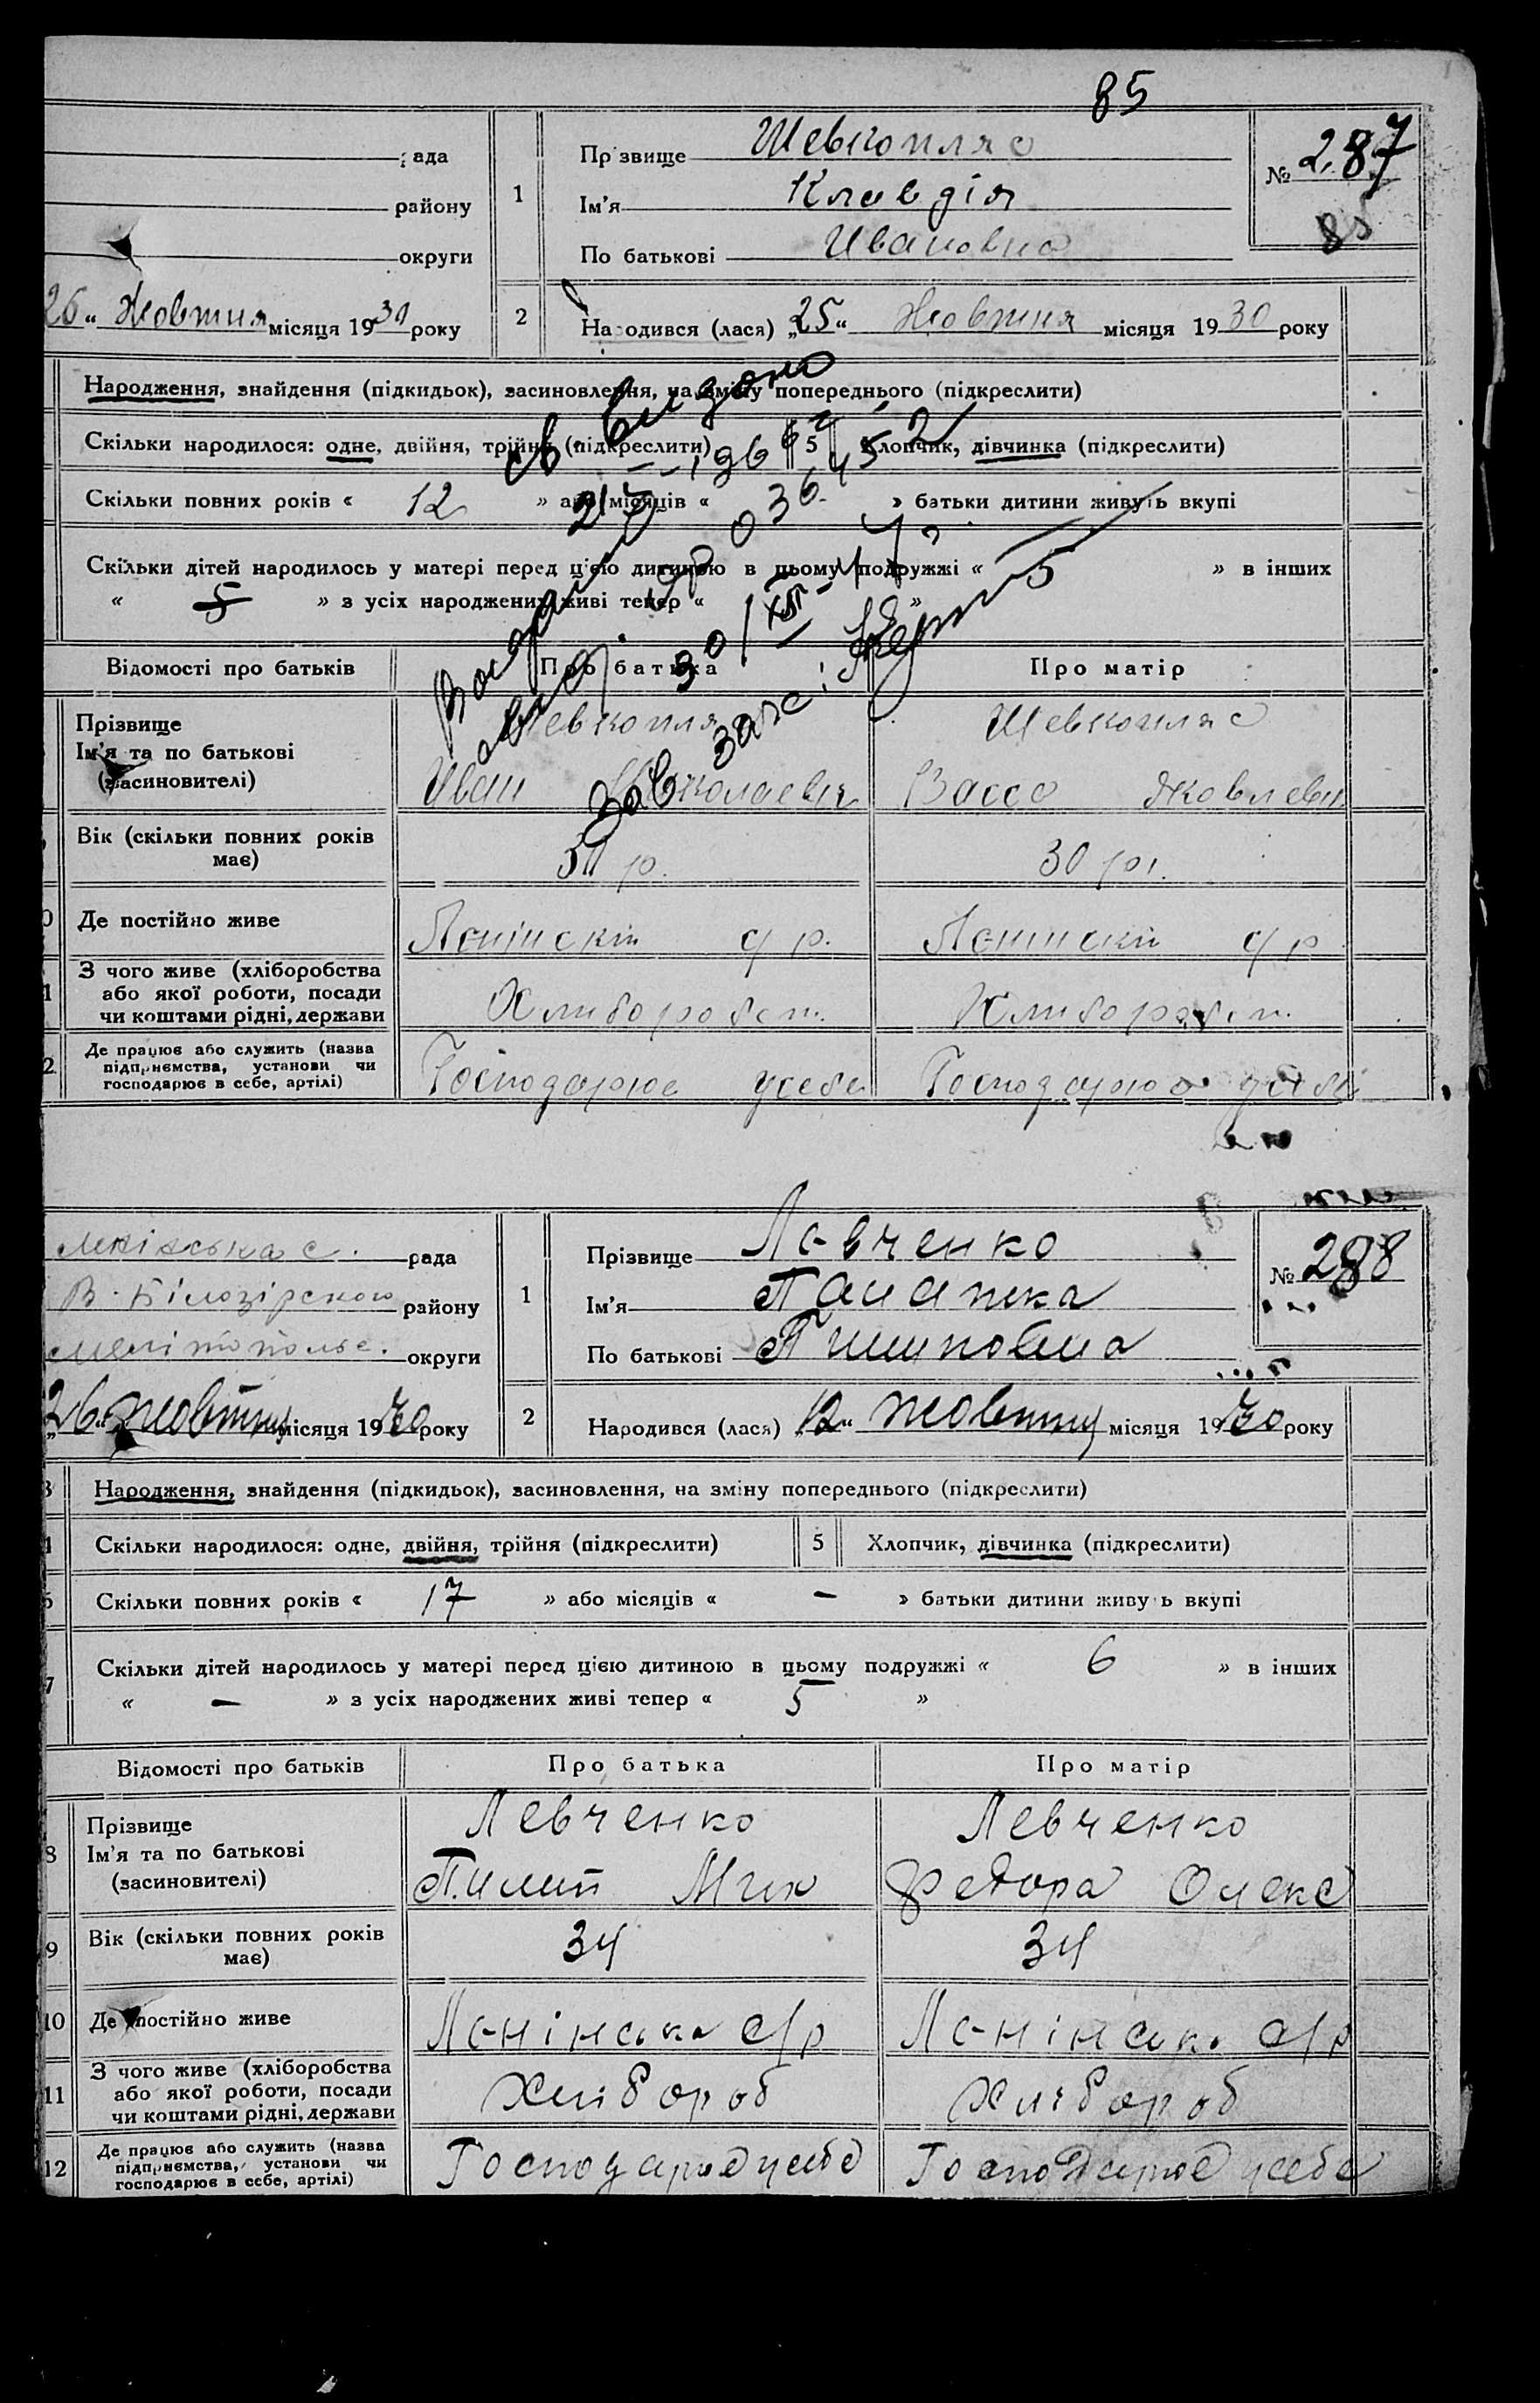 85
рада
району
округи
26 " Жовтня місяця 1930 року
1
Прізвище Шевкопляс
Ім'я Клавдія
По батькові Ивановна
№ 287
85
2
Народився (лася) „25" Жовтня місяця 1930 року
Народження, знайдення (підкидьок), засиновлення, на зміну попереднього (підкреслити)
Скільки народилося: одне, двійня, трійня (підкреслити)
5 Хлопчик, дівчинка (підкреслити)
Скільки повних років « 12 » або місяців « » батьки дитини живуть вкупі
Скільки дітей народилось у матері перед цією дитиною в цьому подружжі « 5 » в інших
« 5 » з усіх народжених живі тепер « »
св. видано
Відомості про батьків
Про батька
Про матір
Прізвище
Ім'я та по батькові
(засиновителі)
Шевкопляс
Иван Николаевич
Шевкопляс
Васса Яковлевн
Вік (скільки повних років має)
р.
30 рі.
Де постійно живе
Ленінскій с/р.
Ленинскій с/р
З чого живе (хліборобства
або якої роботи, посади
чи коштами рідні, держави
Хлиборобст.
Хлиборобст.
2
Де працює або служить (назва
підприємства, установи чи
господарює в себе, артілі)
Госпοдарює усебе
Господарює усебе
Ленінська с. рада
В. Білозірского району
Меліпопольс. округи
„26" Жовтня місяця 1930 року
1
Прізвище Левченко
Ім'я Панашка
По батькові Пилиповна
№ 288
2
Народився (лася) „12" Жовтня місяця 1930 року
3
Народження, знайдення (підкидьок), засиновлення, на зміну попереднього (підкреслити)
4
Скільки народилося: одне, двійня, трійня (підкреслити)
5 Хлопчик, дівчинка (підкреслити)
6
Скільки повних років « 17 » або місяців « — » батьки дитини живуть вкупі
7
Скільки дітей народилось у матері перед цією дитиною в цьому подружжі « 6 » в інших
« — » з усіх народжених живі тепер « 5 »
Відомості про батьків
Про батька
Про матір
8
Прізвище
Ім'я та по батькові
(засиновителі)
Левченко
Пилип Мих
Левченко
Федора Олекс
9
Вік (скільки повних років має)
34
34
10
Де постійно живе
Ленінська с/р
Ленінська с/р
11
З чого живе (хліборобства
або якої роботи, посади
чи коштами рідні, держави
Хлібороб
Хлібороб
12
Де працює або служить (назва
підприємства, установи чи
господарює в себе, артілі)
Господарює усебе
Господарює усебе